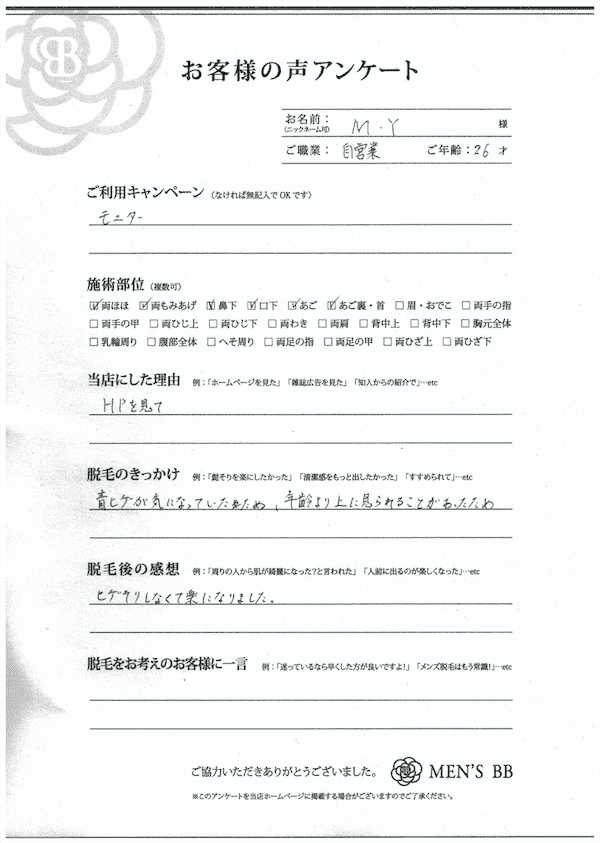 BB
お客様の声アンケート
お名前： M.Y 様
(ニックネーム可)
ご職業： 自営業 ご年齢：26 才
ご利用キャンペーン （なければ無記入でOKです）
モニター
施術部位 （複数可）
☑両ほほ ☑両もみあげ ☑鼻下 ☑口下 ☑あご ☑あご裏・首 □眉・おでこ □両手の指
□両手の甲 □両ひじ上 □両ひじ下 □両わき □両肩 □背中上 □背中下 □胸元全体
□乳輪周り □腹部全体 □へそ周り □両足の指 □両足の甲 □両ひざ上 □両ひざ下
当店にした理由 例：「ホームページを見た」「雑誌広告を見た」「知人からの紹介で」…etc
HPを見て
脱毛のきっかけ 例：「髭そりを楽にしたかった」「清潔感をもっと出したかった」「すすめられて」…etc
青ヒゲが気になっていたため、年齢より上に見られることがあったため
脱毛後の感想 例：「周りの人から肌が綺麗になった？と言われた」「人前に出るのが楽しくなった」…etc
ヒゲソリしなくて楽になりました。
脱毛をお考えのお客様に一言 例：「迷っているなら早くした方が良いですよ！」「メンズ脱毛はもう常識！」…etc
ご協力いただきありがとうございました。 MEN'S BB
※このアンケートを当店ホームページに掲載する場合がございますのでご了承ください。